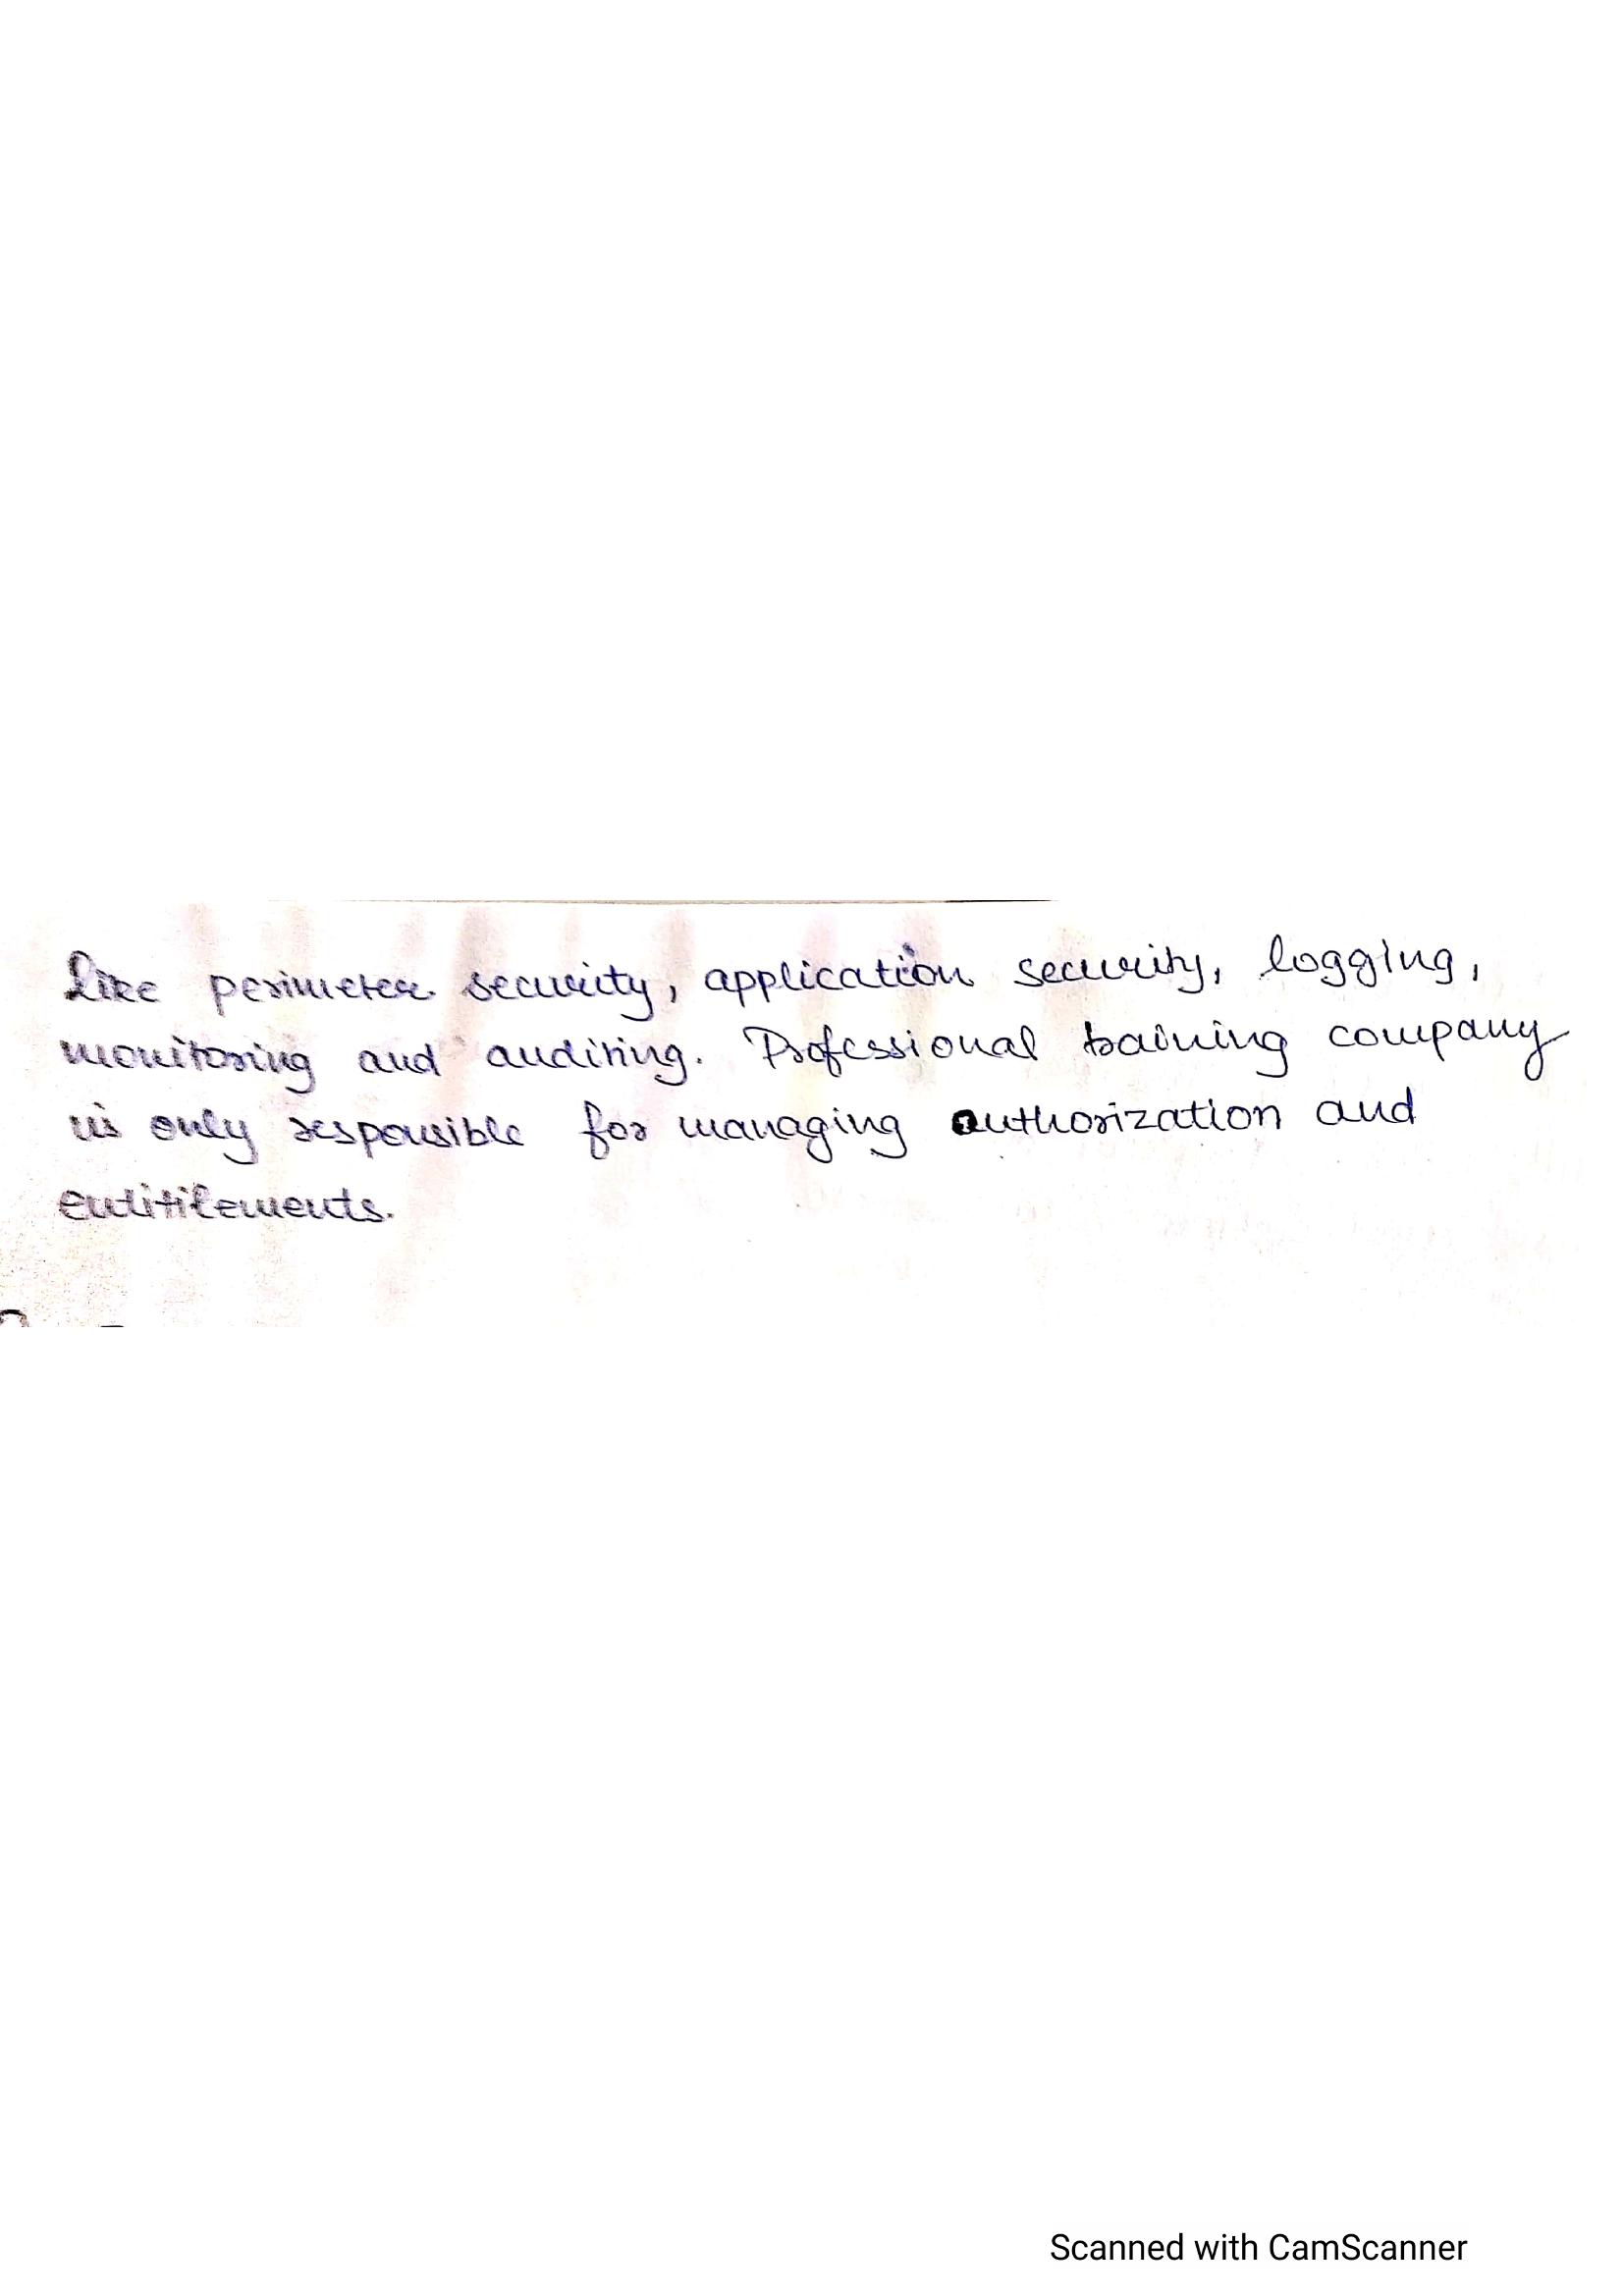 Like perimeter security, application security, logging,
monitoring and auditing. Professional training company
is only responsible for managing authorization and
entitilements.
Scanned with CamScanner